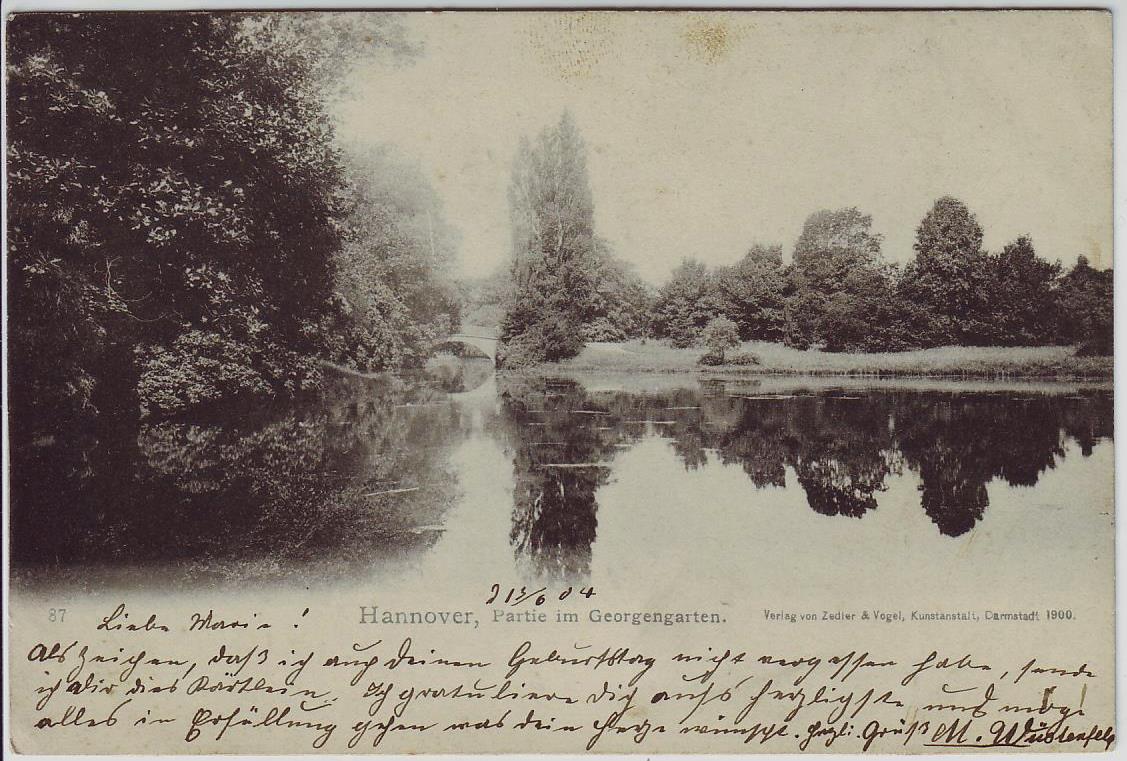 d 15/6 04
87
Hannover, Partie im Georgengarten.
Verlag von Zedler & Vogel, Kunstanstalt, Darmstadt 1900.
Liebe Marie!
Als Zeichen, daß ich auch deinen Geburtstag nicht vergessen habe, sende
ich dir dies Kärtlein. Ich gratuliere dich aufs herzligste und möge
alles in Erfüllung gehen was dein Herze wünscht. Herzl. Gruß M. Wüstenfeld